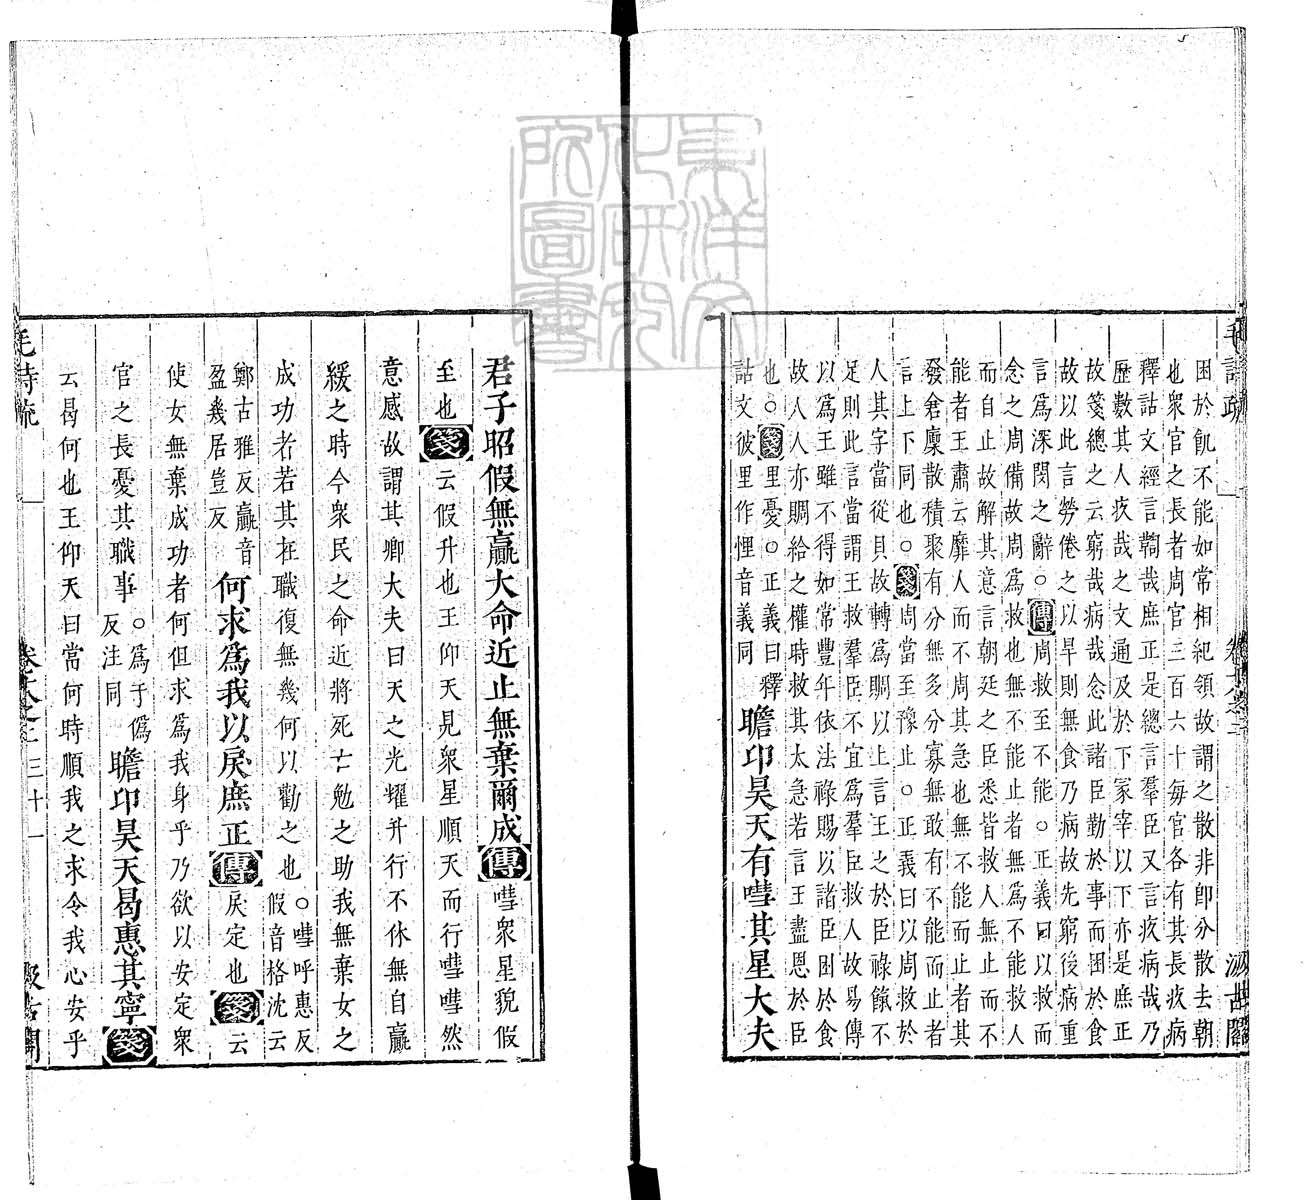 困於飢不能如常相紀領故謂之散非卽分散去朝
也衆官之長者周官三百六十每官各有其長疚病
釋詁文經言鞫哉庶正是總言羣臣又言疚病哉乃
歷數其人疚哉之文通及於下冢宰以下亦是庶正
故箋總之云窮哉病哉念此諸臣勤於事而困於食
故以此言勞倦之以旱則無食乃病故先窮後病重
言爲深閔之辭○傳周救至不能○正義曰以救而
念之周備故周爲救也無不能止者無爲不能救人
而自止故解其意言朝廷之臣悉皆救人無止而不
能者王肅云靡人而不周其急也無不能而止者其
發倉廩散積聚有分無多分寡無敢有不能而止者
言上下同也○箋周當至豫止○正義曰以周救於
人其字當從貝故轉爲賙以上言王之於臣祿餼不
足則此言當謂王救羣臣不宜爲羣臣救人故易傳
以爲王雖不得如常豐年依法祿賜以諸臣困於食
故人人亦賙給之權時救其太急若言王盡恩於臣
也○箋里憂○正義曰釋
詁文彼里作悝音義同
瞻卬昊天有嘒其星大夫
君子昭假無贏大命近止無棄爾成傳嘒衆星貌假
至也箋云假升也王仰天見衆星順天而行嘒嘒然
意感故謂其卿大夫曰天之光耀升行不休無自贏
緩之時今衆民之命近將死亡勉之助我無棄女之
成功者若其在職復無幾何以勸之也○嘒呼惠反
假音格沈云
鄭古雅反贏音
盈幾居豈反
何求爲我以戾庶正傳戾定也箋云
使女無棄成功者何但求爲我身乎乃欲以安定衆
官之長憂其職事○爲于僞
反注同
瞻卬昊天曷惠其寧箋
云曷何也王仰天曰當何時順我之求令我心安乎
毛詩疏
卷十八之二
三十一
汲古閣